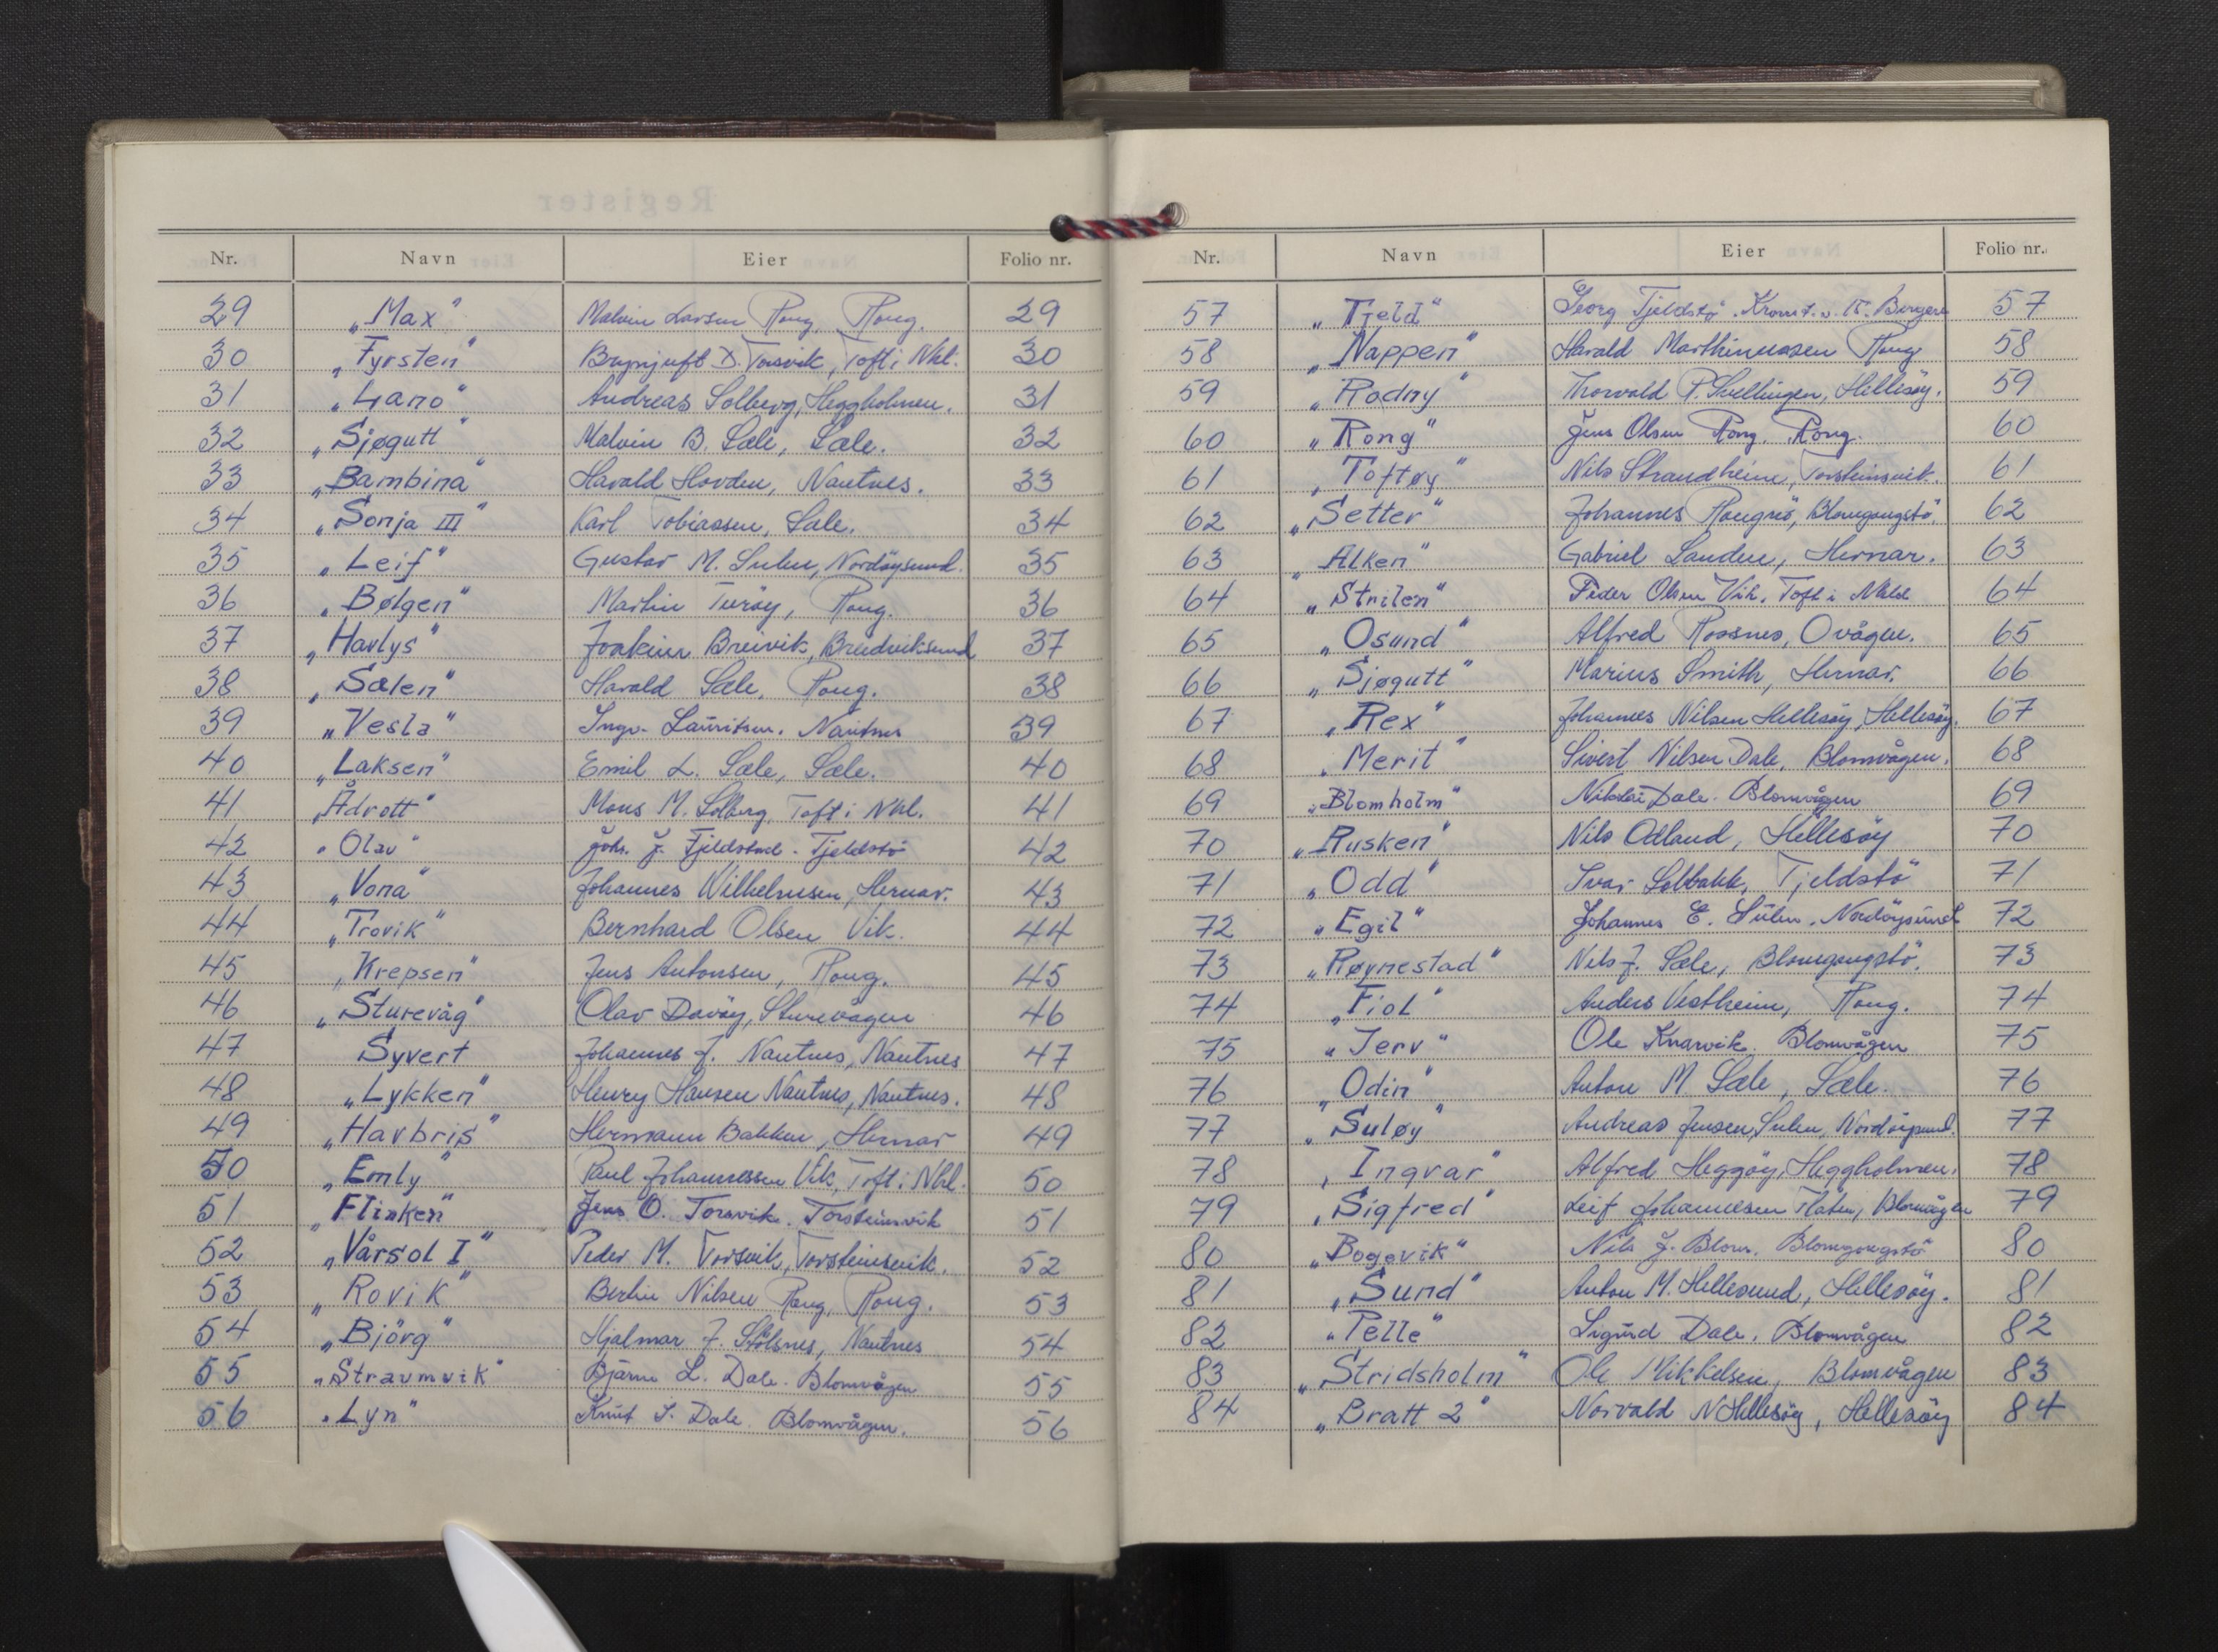 Nr. Navn Eier Folio nr.
29 „Max" Malvin Larsen Rong, Rong. 29
30 „Fyrsten" Brynjulft D. Torsvik, Toft i Nhl. 30
31 „Lano" Andreas Solberg, Heggholmen. 31
32 „Sjøgutt" Malvin B. Sæle, Sæle. 32
33 „Bambina" Harald Hovden, Nautnes. 33
34 „Sonja III" Karl Tobiassen, Sæle. 34
35 „Leif" Gustav M. Sulen, Nordöysund. 35
36 „Bølgen" Martin Turöy, Rong. 36
37 „Havlys" Joakim Breivik, Breidviksund 37
38 „Sælen" Harald Sæle, Rong. 38
39 „Vesla" Ingv. Lauritsen. Nautnes 39
40 „Laksen" Emil L. Sæle, Sæle. 40
41 „Ådrott" Mons M. Solberg, Toft i Nhl. 41
42 „Olav" Johs. J. Fjeldstad - Tjeldstö 42
43 „Vona" Johannes Wilhelmsen, Hernar. 43
44 „Trovik" Bernhard Olsen Vik. 44
45 „Krepsen" Jens Antonsen, Rong. 45
46 „Sturevåg" Olav Davöy, Sturevågen 46
47 Syvert Johannes J. Nautnes, Nautnes 47
48 „Lykken" Henry Hansen Nautnes, Nautnes. 48
49 „Havbris" Hermann Bakken, Hernar 49
50 „Emly" Paul Johannessen Vik, Toft i Nhl. 50
51 „Flinken" Jens O. Torsvik. Torsteinsvik 51
52 „Vårsol I" Peder M. Torsvik, Torsteinsvik. 52
53 „Rovik" Berlin Nilsen Rong, Rong. 53
54 „Björg" Hjalmar J. Stölsnes, Nautnes 54
55 „Straumvik" Bjarne L. Dale. Blomvågen 55
56 „Lyn" Knut S. Dale. Blomvågen. 56
Nr. Navn Eier Folio nr.
57 „Tjeld" Georg Tjeldstö. 57
58 „Nappen" Harald Marthinussen Rong 58
59 „Rodny" Thorvald P. Skellingen, Hellesøy. 59
60 „Rong" Jens Olsen Rong, Rong. 60
61 „Toftøy" Nils Strandheim, Torsteinsvik. 61
62 „Setter" Johannes Rongnö, Blomgongstö. 62
63 „Alken" Gabriel Landen, Hernar. 63
64 „Strilen" Peder Olsen Vik. Toft i Nhld 64
65 „Osund" Alfred Rossnes, Ovågen. 65
66 „Sjøgutt" Marius Smith, Hernar. 66
67 „Rex" Johannes Nilsen Hellesöy, Hellesöy. 67
68 „Merit" Sivert Nilsen Dale, Blomvågen. 68
69 „Blomholm" Nikolai Dale. Blomvågen 69
70 „Rusken" Nils Odland, Hellesöy 70
71 „Odd" Ivar Solbakk, Tjeldstö 71
72 „Egil" Johannes E. Sulen. Nordöysund 72
73 „Røynestad" Nils J. Sæle, Blomgongstö. 73
74 „Fiol" Anders Vestheim, Rong. 74
75 „Jerv" Ole Knarvik. Blomvågen 75
76 „Odin" Anton M. Sæle, Sæle. 76
77 „Suløy" Andreas Jensen Sulen, Nordöysund. 77
78 „Ingvar" Alfred Heggöy, Heggholmen. 78
79 „Sigfred" Leif Johannesen Flaten, Blomvågen 79
80 „Bogevik" Nils J. Blom. Blomgongstö 80
81 „Sund" Anton M. Hellesund, Hellesöy. 81
82 „Pelle" Sigurd Dale, Blomvågen 82
83 „Stridsholm" Ole Mikkelsen, Blomvågen 83
84 „Bratt 2" Norvald N Hellesöy, Hellesöy 84